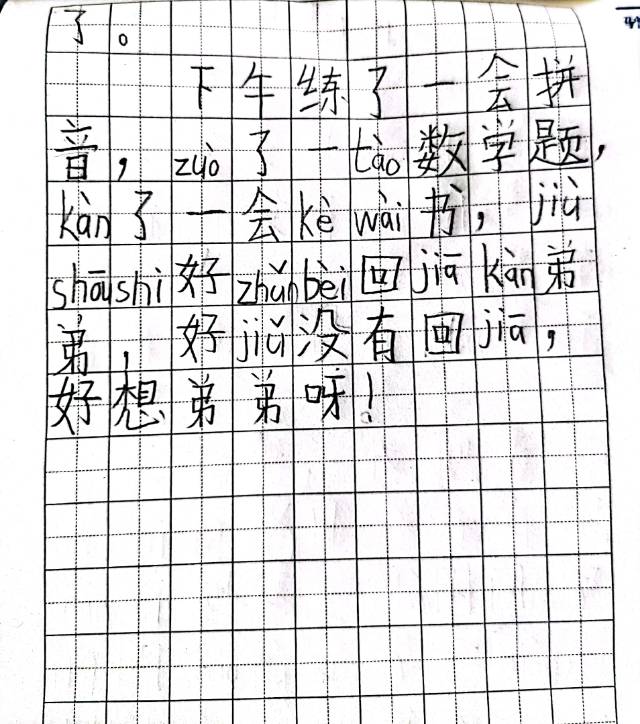 了。
下午练了一会拼
音，zuò了一tào数学题，
kàn了一会kè wài书，jiù
shōushi好zhǔnbèi回jiā kàn弟
弟，好jiǔ没有回jiā，
好想弟弟呀！